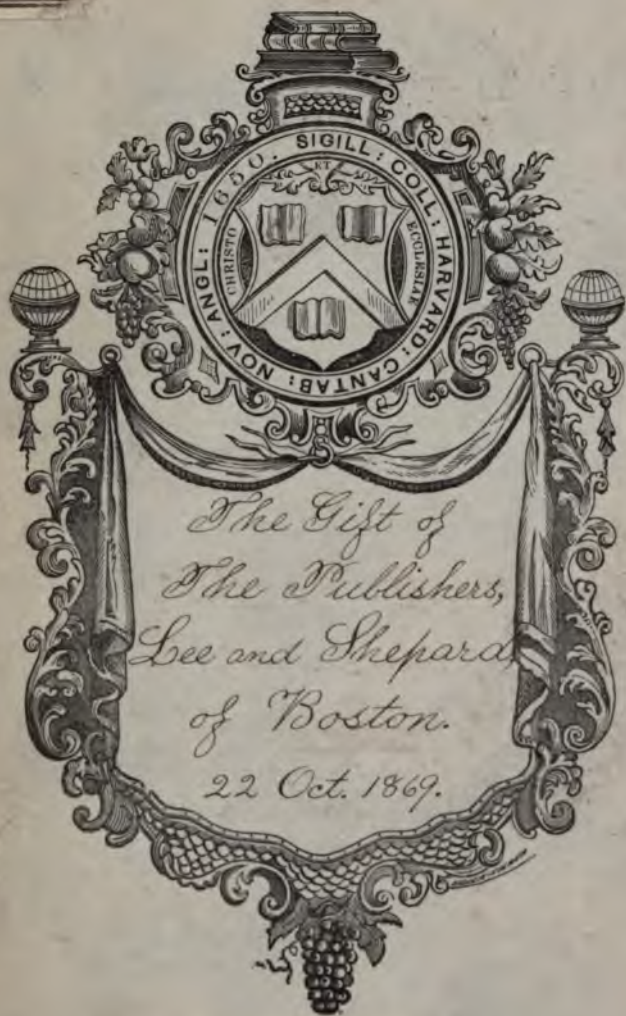 SIGILL: COLL: HARVARD: CANTAB: NOV: ANGL: 1650.
ET
CHRISTO
ECCLESIAE
The Gift of
The Publishers,
Lee and Shepard,
of Boston.
22 Oct. 1869.